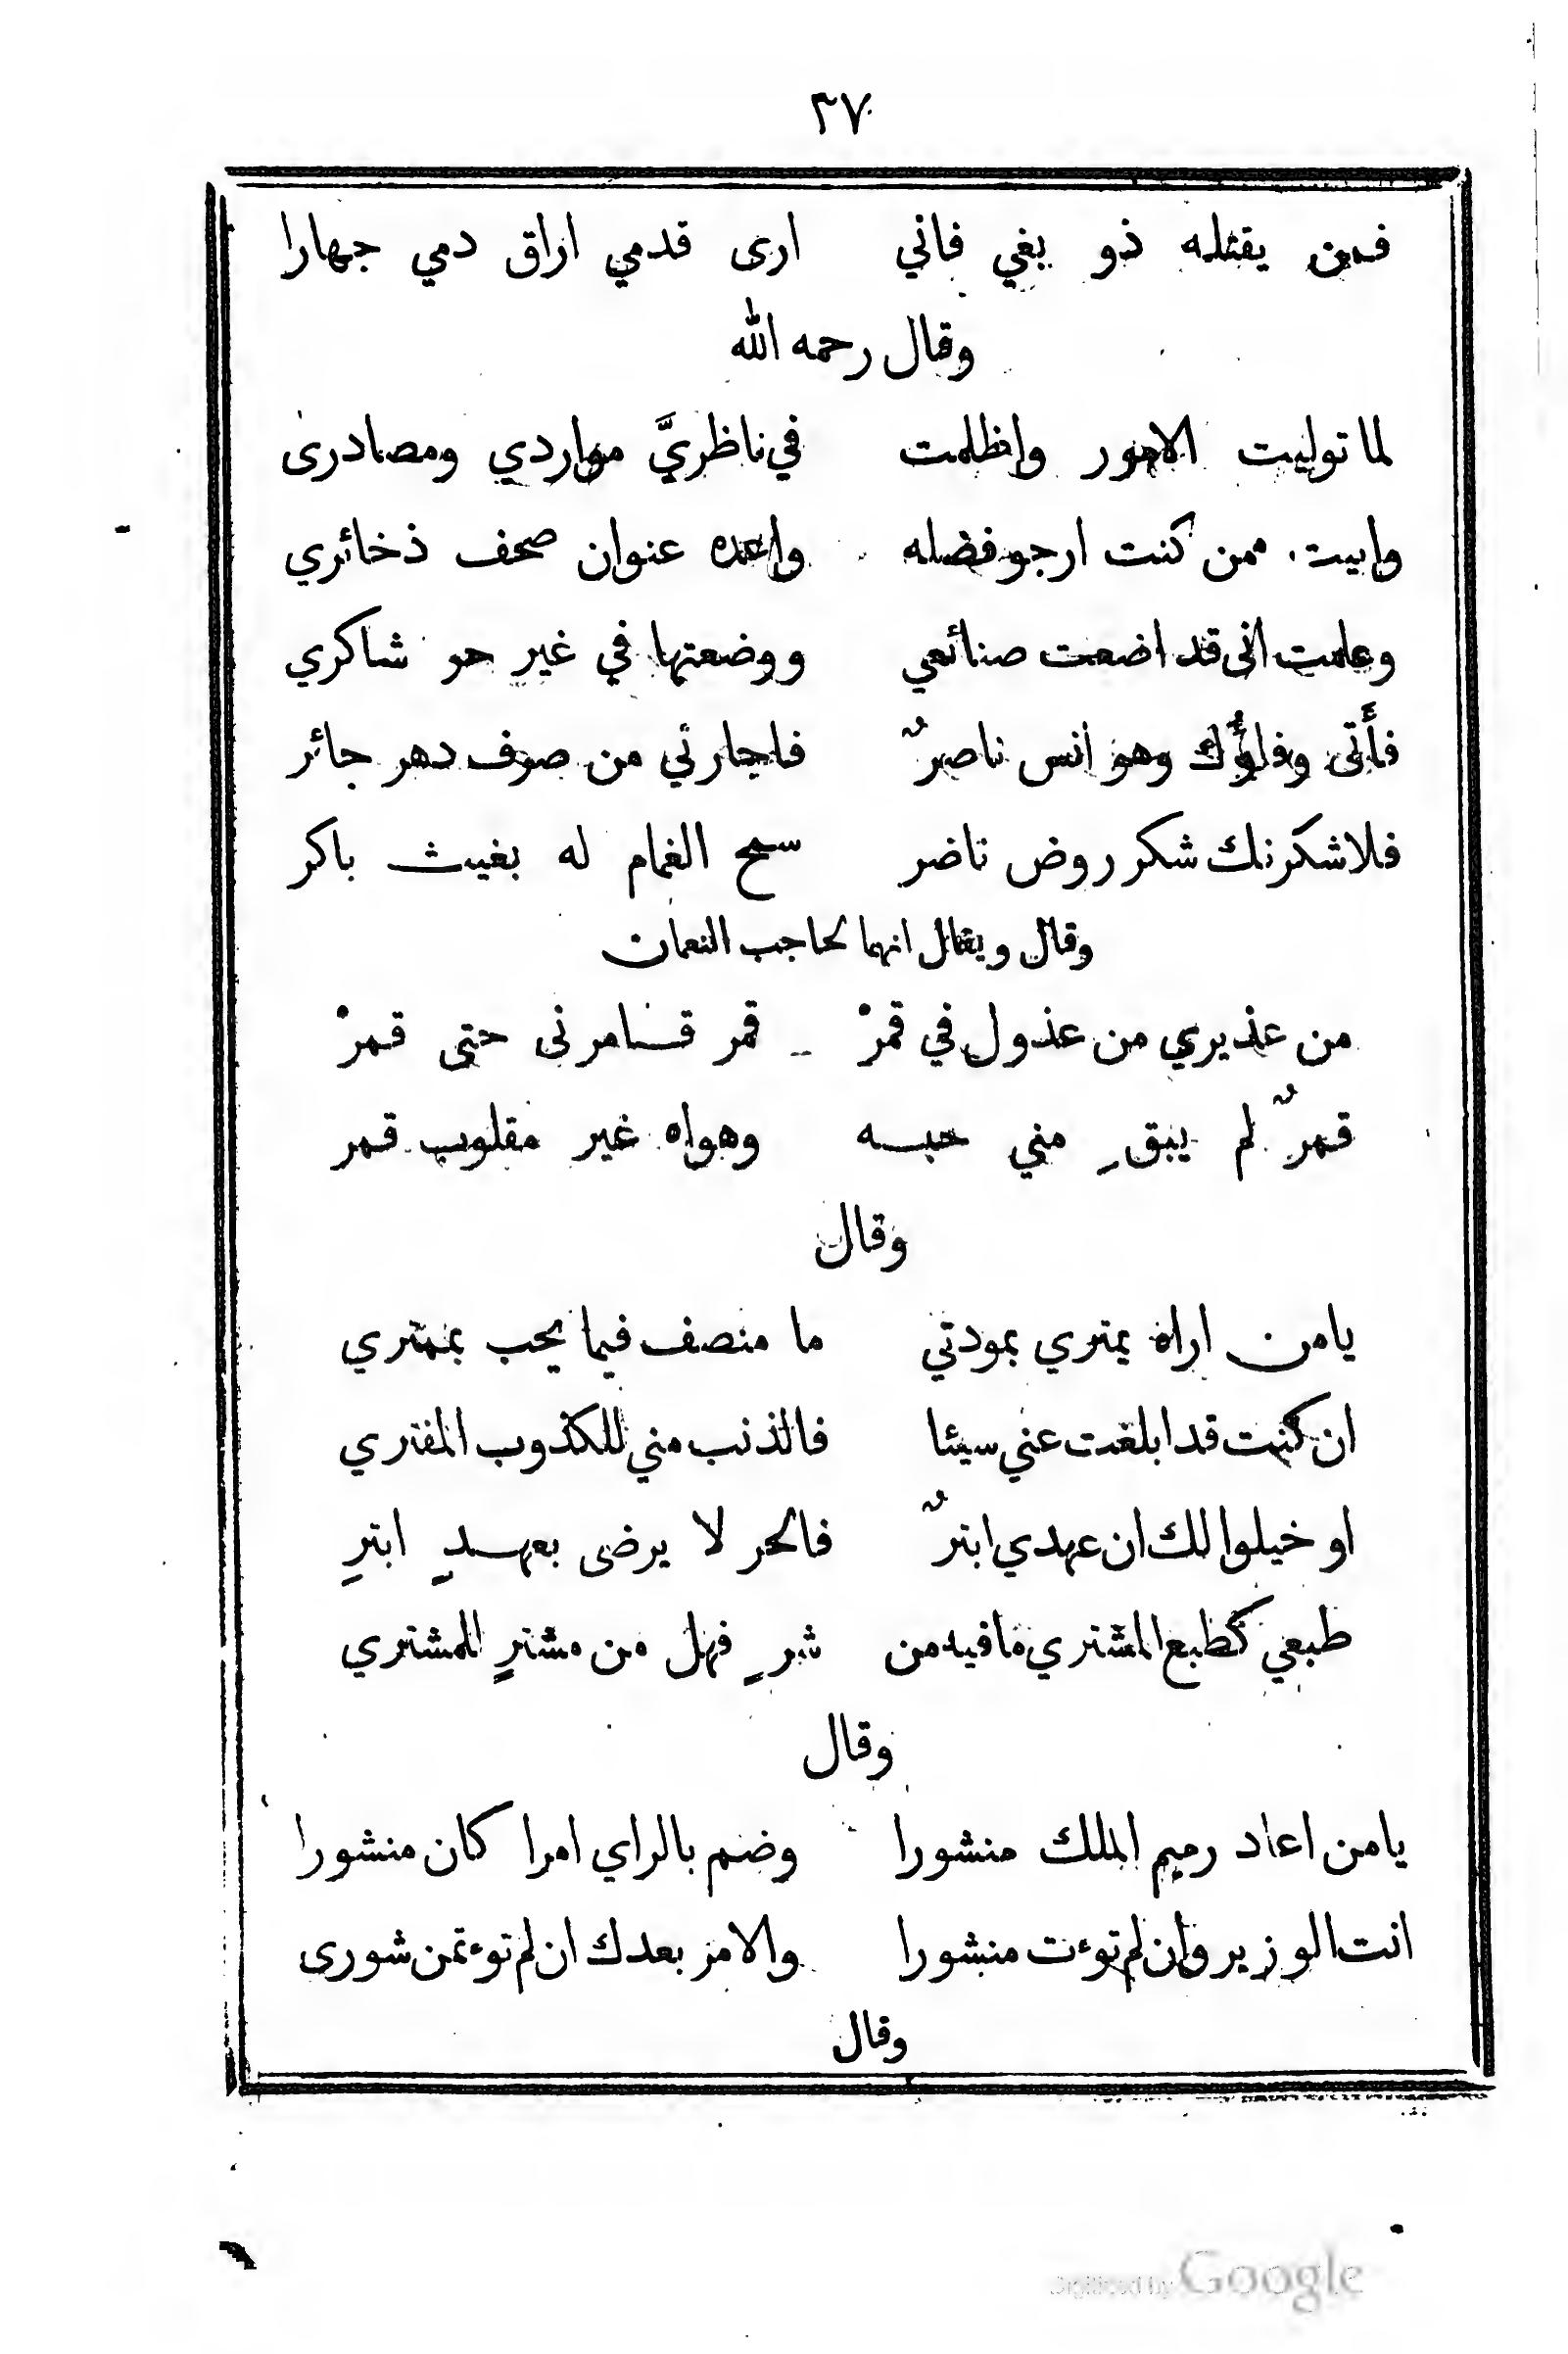 ٣٧
فمن يقتله ذو بغي فاني ارى قدمي اراق دمي جهارا
وقال رحمه الله
لما توليت الامور واظلمت في ناظريَّ مواردي ومصادرى
وابيت ممن كنت ارجو فضله واعده عنوان صحف ذخائري
وعلمت انى قد اضعت صنائعي ووضعتها في غير حر شاكري
فأتى وفاؤك وهو انس ناصرٌ فاجارني من صرف دهر جائر
فلاشكرنك شكر روض ناضر سمح الغمام له بغيث باكر
وقال ويقال انهما لحاجب النعمان
من عذيري من عذول في قمرْ قمر قامرنى حتى قمرْ
قمرٌ لم يبقِ مني حبه وهواه غير مقلوب قمر
وقال
يامن اراه يمتري بمودتي ما منصف فيما يحب بممتري
ان كنت قد ابلغت عني سيئا فالذنب مني للكذوب المفتري
او خيلوا لك ان عهدي ابترٌ فالحر لا يرضى بعهدٍ ابترِ
طبعي كطبع المشتري مافيه من شرٍ فهل من مشترٍ للمشتري
وقال
يامن اعاد رميم الملك منشورا وضم بالراي امرا كان منشورا
انت الوزير وان لم توءت منشورا والامر بعدك ان لم توءتمن شورى
وقال
Digitized by Google